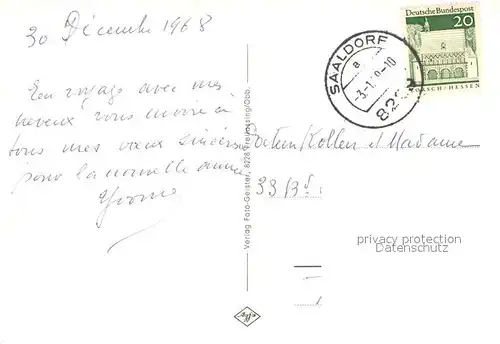 30 Décembre 1968
En voyage avec mes
neveux vous
tous mes vœux sincères
pour la nouvelle année
Yvonne
Verlag Foto-Geister, 8228 Freilassing/Obb.
SAALDORF
a
-3.-1.
-10
822
Deutsche Bundespost
20
LORSCH/HESSEN
et Madame
33 Bd
privacy protection
www.oldthing.com